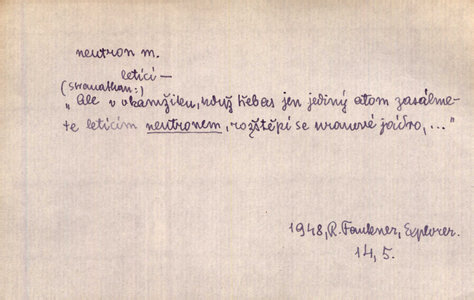 neutron m.
letící —
(Stranathan:)
"Ale v okamžiku, když třebas jen jediný atom zasáhne-
te letícím neutronem, rozštěpí se uranové jádro, ..."
1948, R. Faukner, Explorer.
14, 5.